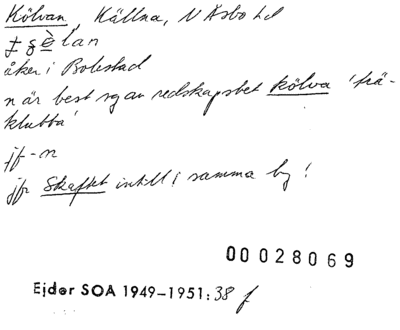 Kölvan, Källna, N Åsbo hd
åker i Bolestad
n är best sg av redskapsbet kölva 'trä-
klubba'
jf -n
jfr Skaftet intill i samma by!
00028069
Ejder SOA 1949-1951: 38 f